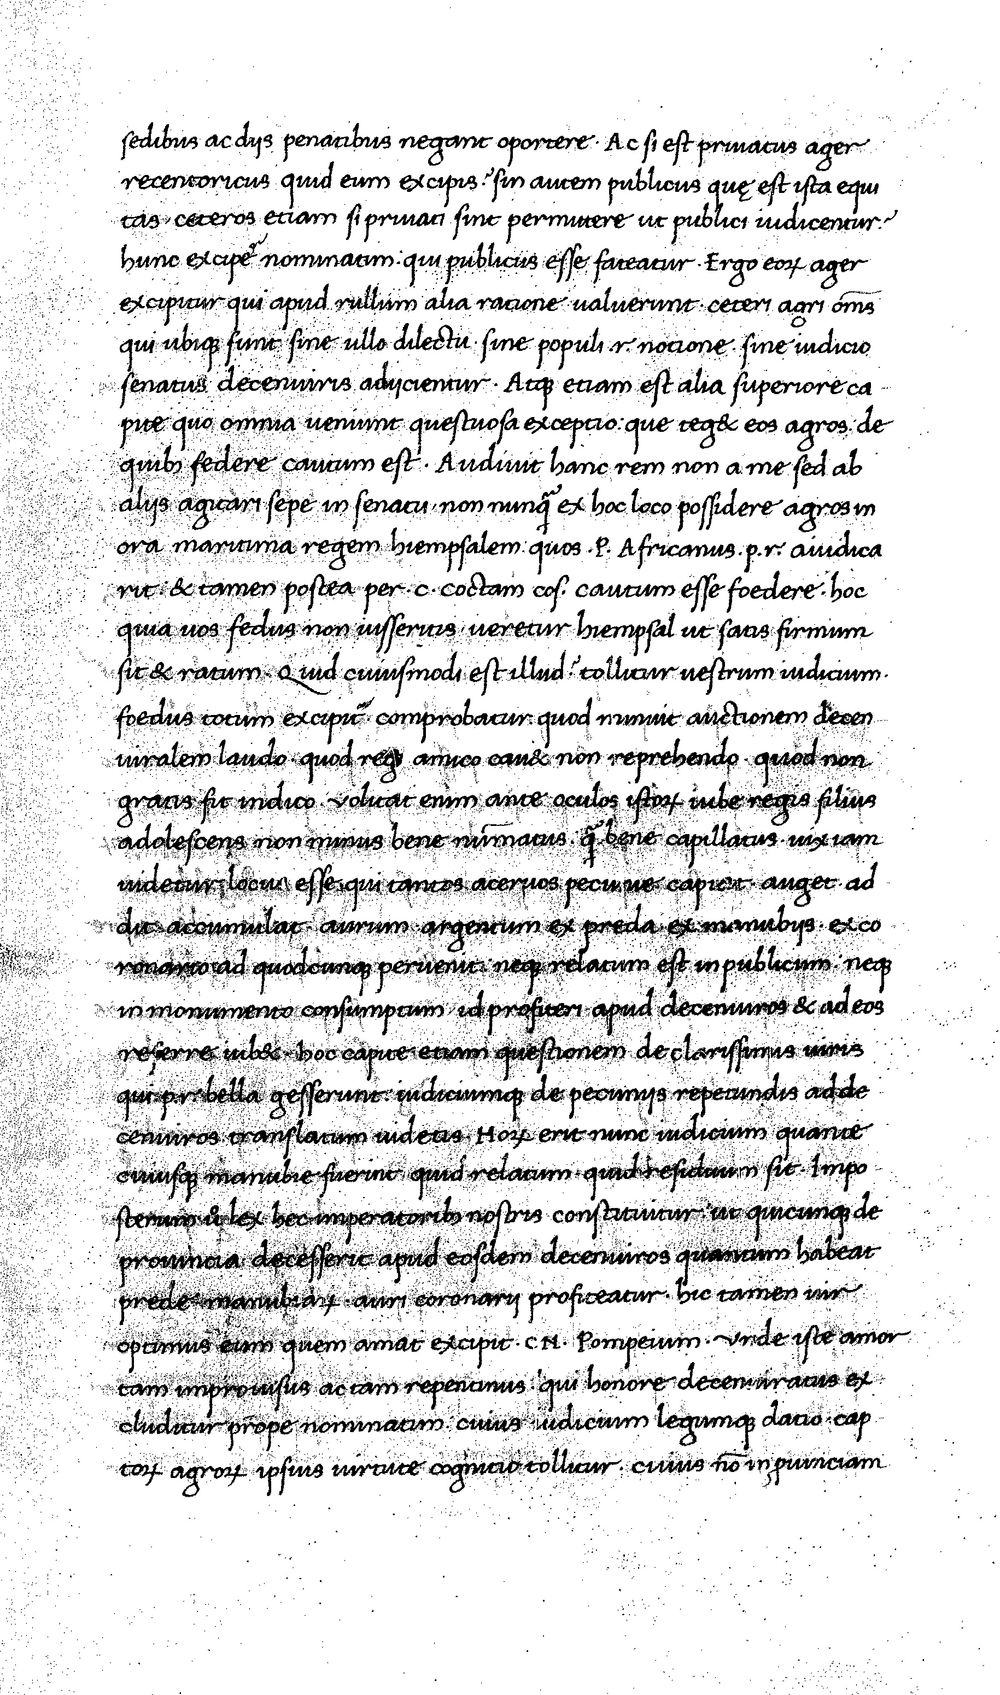 sedibus ac dijs penatibus negant oportere · Ac si est priuatus ager
recentoricus quid eum excipis? sin autem publicus quę est ista equi
tas · ceteros etiam si priuati sint permittere ut publici iudicentur?
hunc excipe᷑ nominatim: qui publicus esse fateatur · Ergo eoꝝ ager
excipitur qui apud rullum alia ratione ualuerunt · ceteri agri om̄s
qui ubiqꝫ sunt sine ullo dilectu · sine populi .r. notione · sine iudicio
senatus decemuiris adijcientur · Atqꝫ etiam est alia superiore ca
pite quo omnia ueniunt questuosa exceptio: que teg& eos agros: de
quibꝫ federe cautum est · Audiuit hanc rem non a me sed ab
alijs agitari sepe in senatu · non nunq̃ ex hoc loco possidere agros in
ora maritima regem hiempsalem quos .P. Africanus .p.r. aiudica
rit · & tamen postea per .c. coctam cos. cautum esse foedere · hoc
quia uos fedus non iusseritis ueretur hiempsal ut satis firmum
sit & ratum · Quid cuiusmodi est illud? tollitur uestrum iudicium ·
foedus totum excipit᷑ comprobatur quod minuit auctionem decen
uiralem laudo · quod regi amico cau& non reprehendo · quod non
gratis fit indico · volitat enim ante oculos istoꝝ iube regis filius
adolescens non minus bene num̄atus · q̃ bene capillatus · uix iam
uidetur locus esse qui tantos aceruos pecunie capiat · auget · ad
dit · accumulat · aurum argentum ex preda ex manubijs · ex co
ronario ad quodcunqꝫ peruenit · neqꝫ relatum est in publicum · neqꝫ
in monumento consumptum id profiteri apud decemuiros & ad eos
referre iub& · hoc capite etiam questionem de clarissimis uiris
qui .p.r. bella gesserunt · iudiciumqꝫ de pecunijs repetundis ad de
cenuiros translatum uidetis · Hoꝝ erit nunc iudicium quante
cuiusqꝫ manubie fuerint quid relatum · quid residuum sit · Impo
sterum & lex hec imperatoribꝫ nostris constituitur · ut quicunqꝫ de
prouincia decesserit apud eosdem decenuiros quantum habeat
prede manubiaꝝ auri coronarij profiteatur · hic tamen uir
optimus eum quem amat excipit · CN. Pompeium · vnde iste amor
tam improuisus ac tam repentinus · qui honore decemuiratus ex
cluditur prope nominatim · cuius iudicium legumqꝫ datio · cap
toꝝ agroꝝ ipsius uirtute cognitio tollitur · cuius nō in puinciam